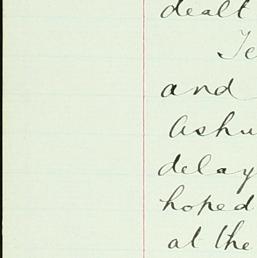 dealt
Te
and
Ashu
delay
hoped
at the